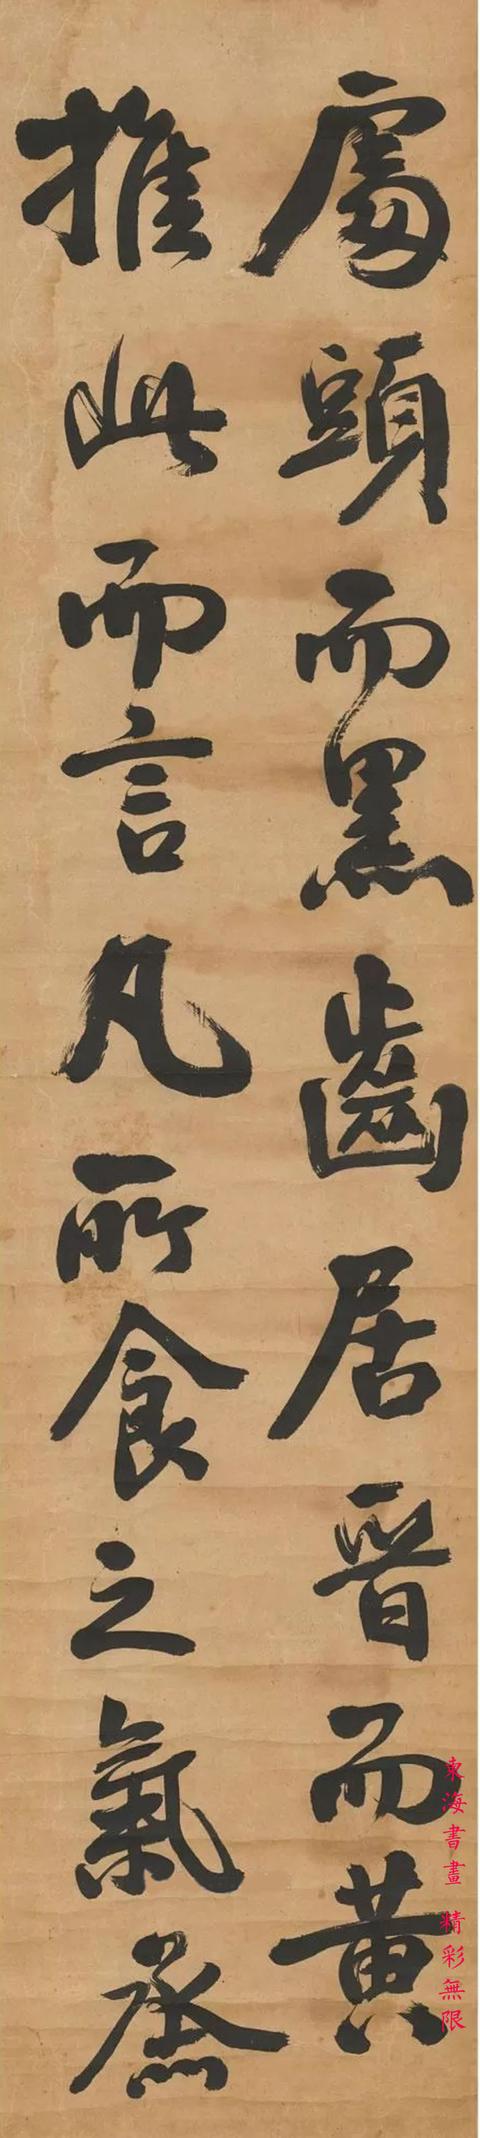 處頭而黑齒居晉而黃
推此而言凡所食之氣烝
東海書畫 精彩無限